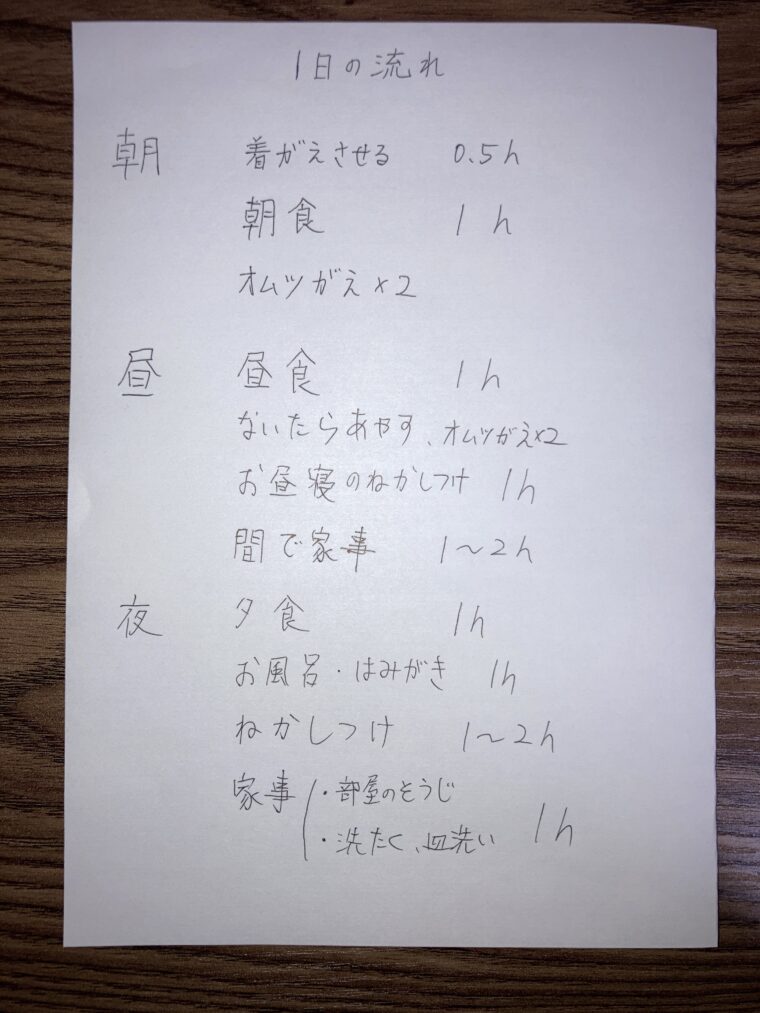 1日の流れ
朝 着がえさせる 0.5h
朝食 1h
オムツがえ×2
昼 昼食 1h
ないたらあやす、オムツがえ×2
お昼寝のねかしつけ 1h
間で家事 1〜2h
夜 夕食 1h
お風呂・はみがき 1h
ねかしつけ 1〜2h
家事 ・部屋のそうじ
・洗たく、皿洗い 1h